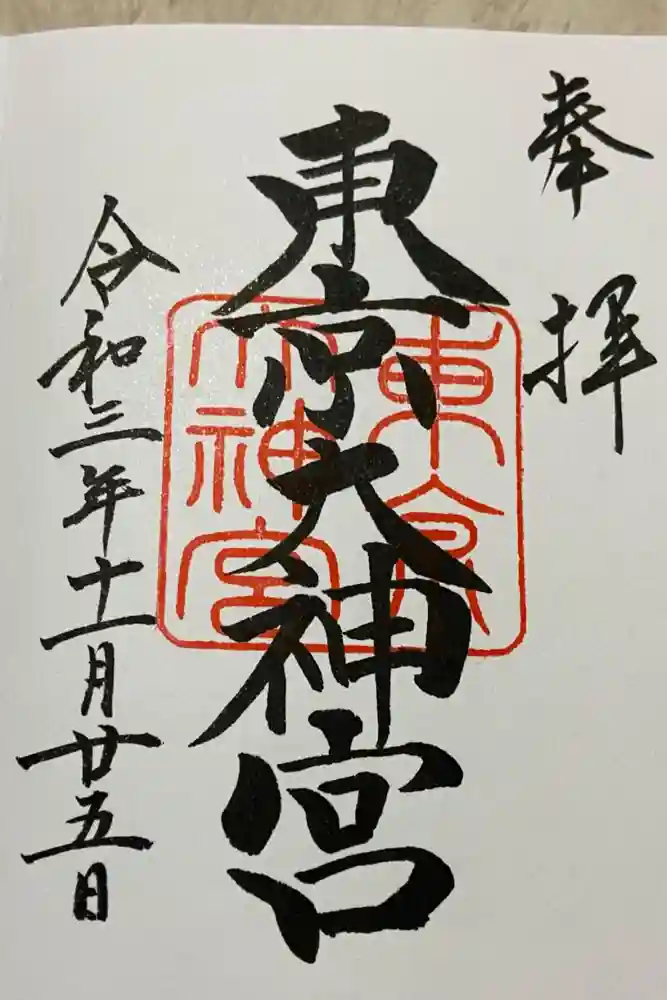 奉拝
東京大神宮
東京
大神宮
令和三年十一月廿五日